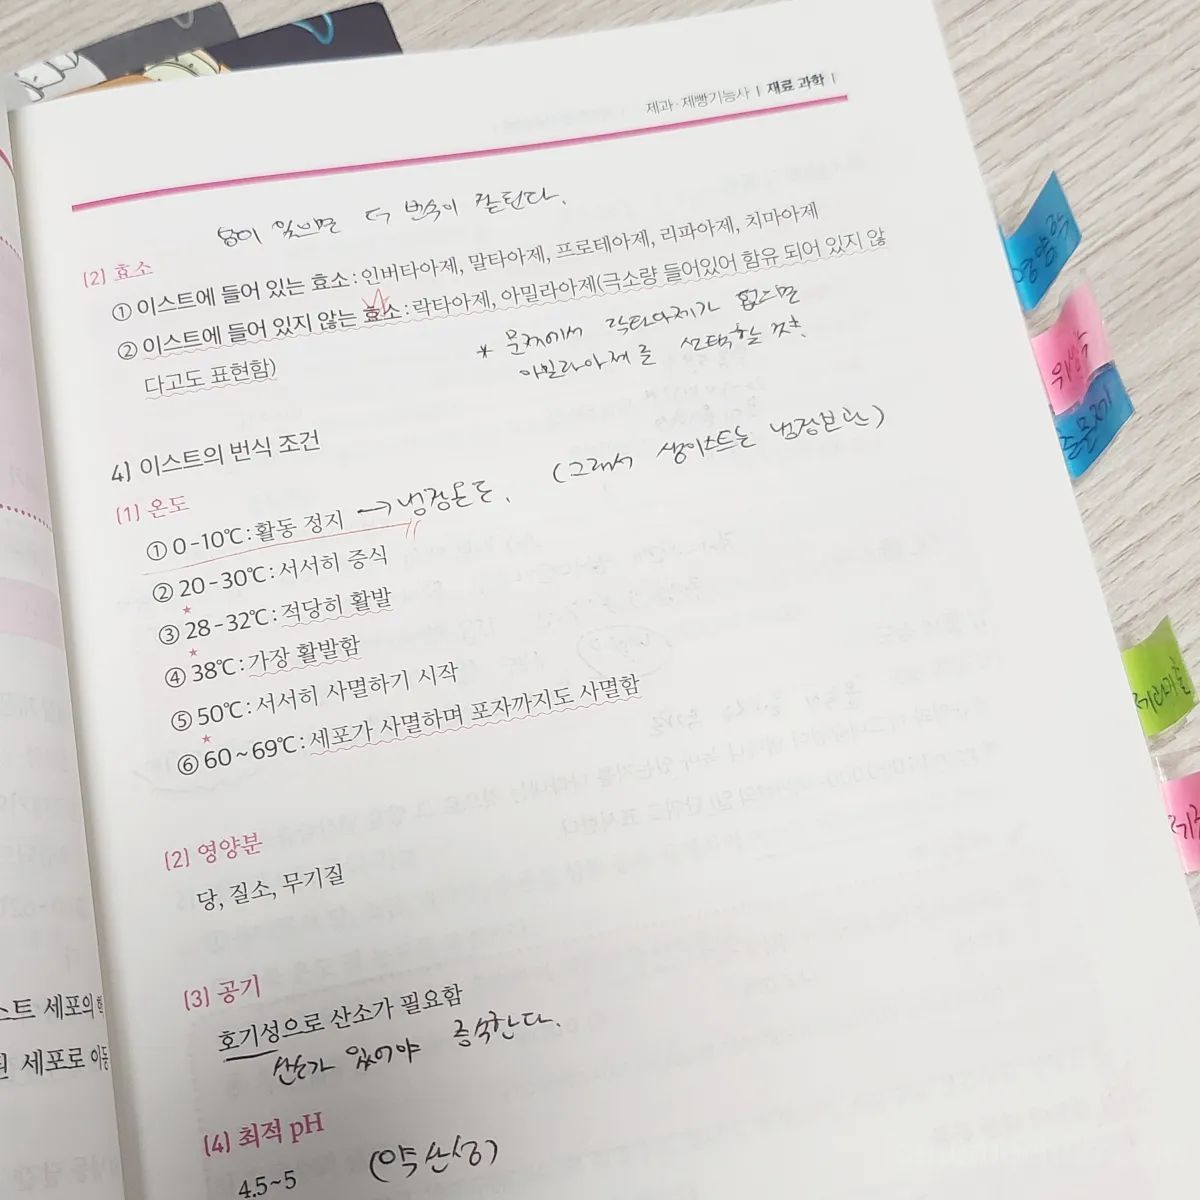 제과·제빵기능사 | 재료 과학 |
봄이 있으면 더 번식이 잘된다.
(2) 효소
① 이스트에 들어 있는 효소: 인버타아제, 말타아제, 프로테아제, 리파아제, 치마아제
② 이스트에 들어 있지 않는 효소: 락타아제, 아밀라아제(극소량 들어있어 함유 되어 있지 않
다고도 표현함)
* 문제에서 락타아제가 없으면
아밀라아제를 선택할 것.
4) 이스트의 번식 조건
(그래서 생이스트는 냉장보관)
(1) 온도
① 0-10℃: 활동 정지 → 냉장온도.
② 20-30℃: 서서히 증식
③ 28-32℃: 적당히 활발
④ 38℃: 가장 활발함
⑤ 50℃: 서서히 사멸하기 시작
⑥ 60~69℃: 세포가 사멸하며 포자까지도 사멸함
(2) 영양분
당, 질소, 무기질
(3) 공기
호기성으로 산소가 필요함
산소가 있어야 증식한다.
(4) 최적 pH
4.5~5 (약산성)
스트 세포의
세포로 이동
영양학
위생학
문제